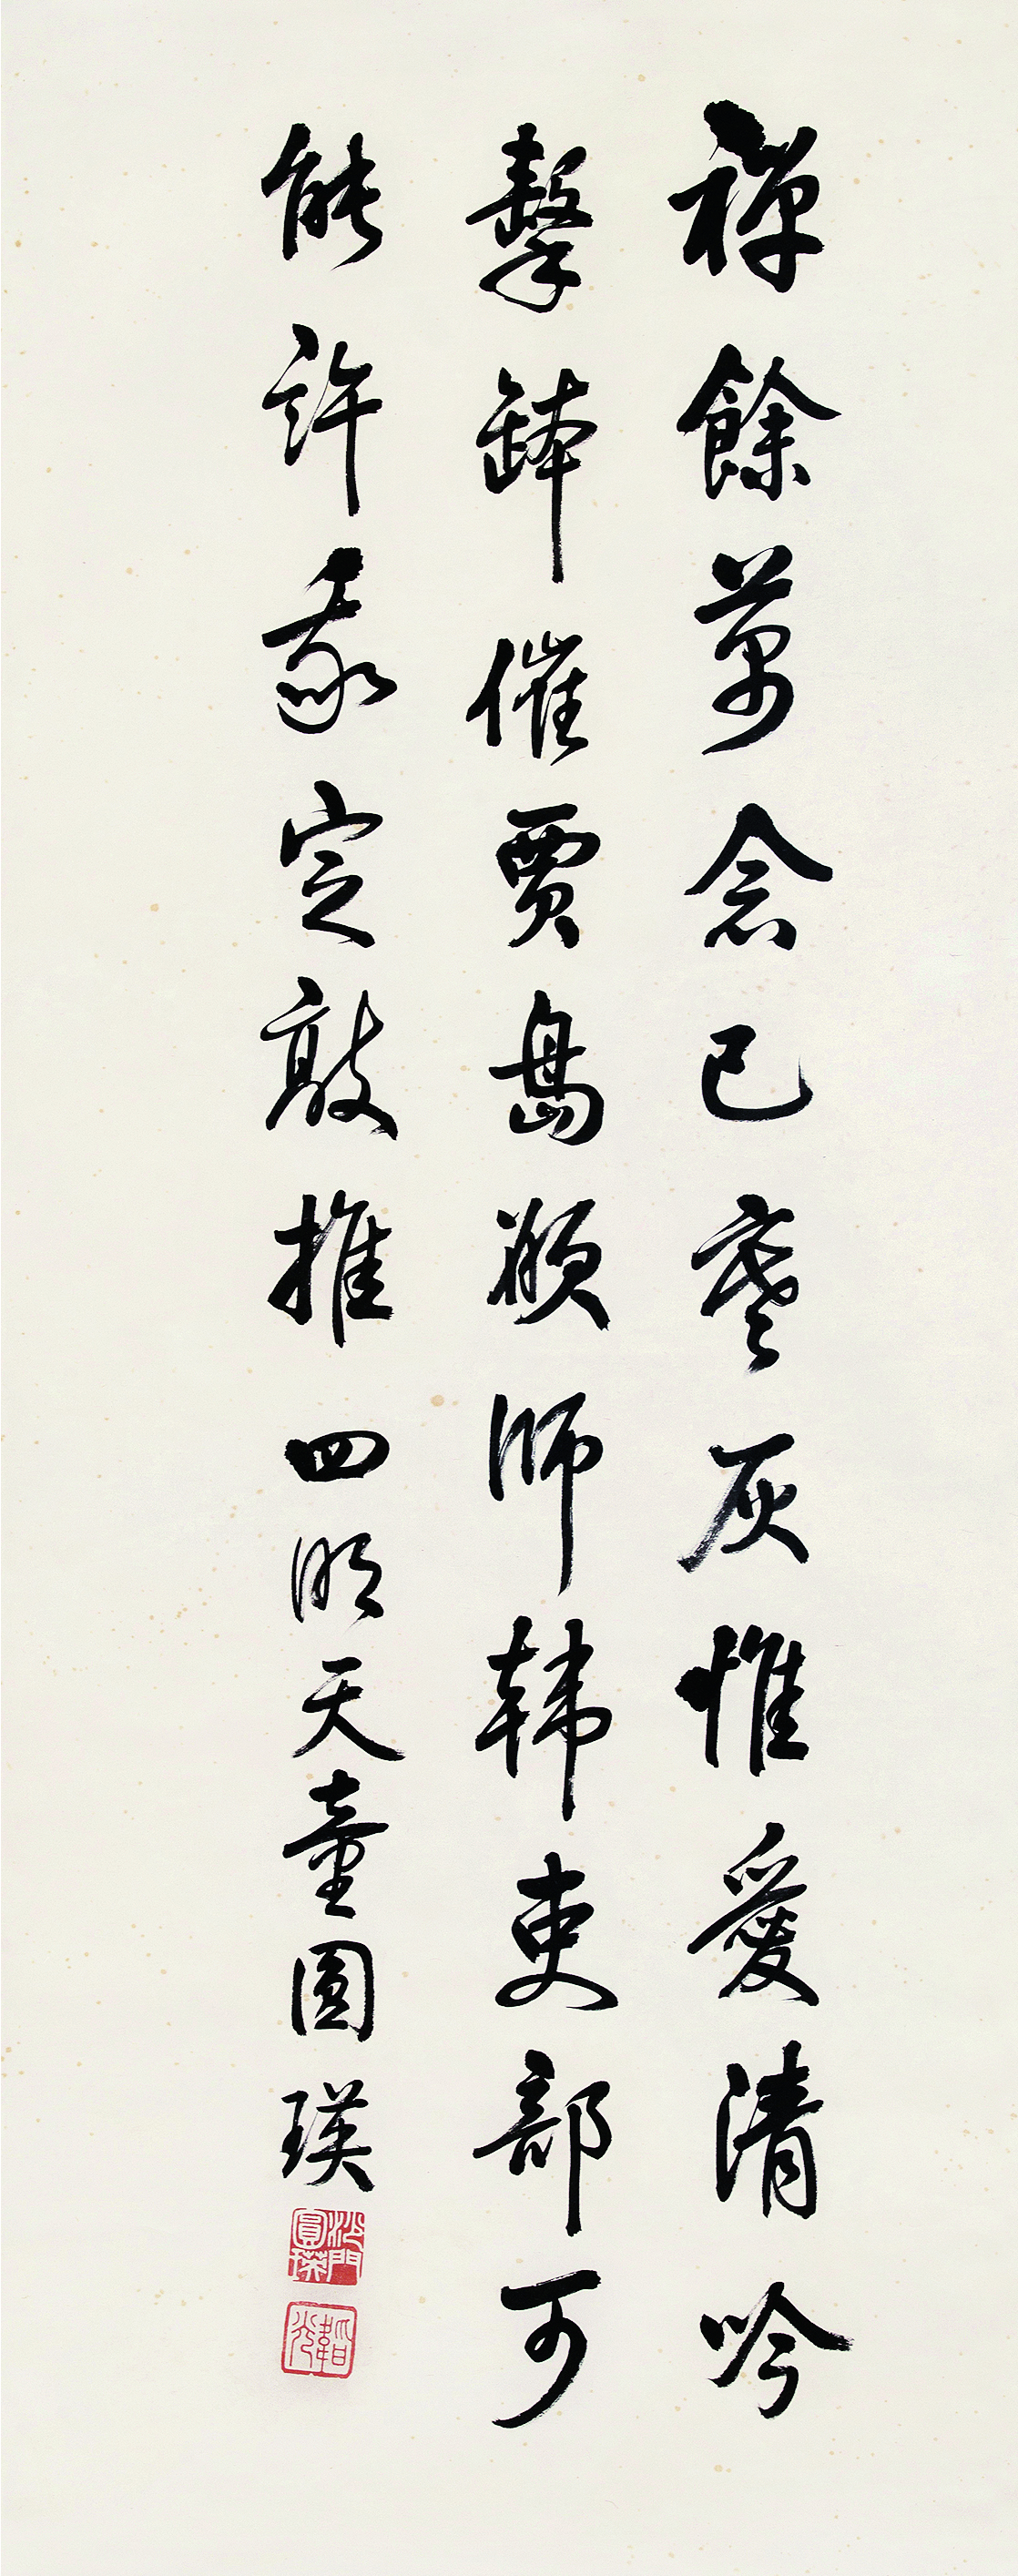 禪餘萬念已寒灰惟愛清吟
擊缽催賈島願師韓吏部可
能許我定敲推四明天童圓瑛
沙門圓瑛
韜光